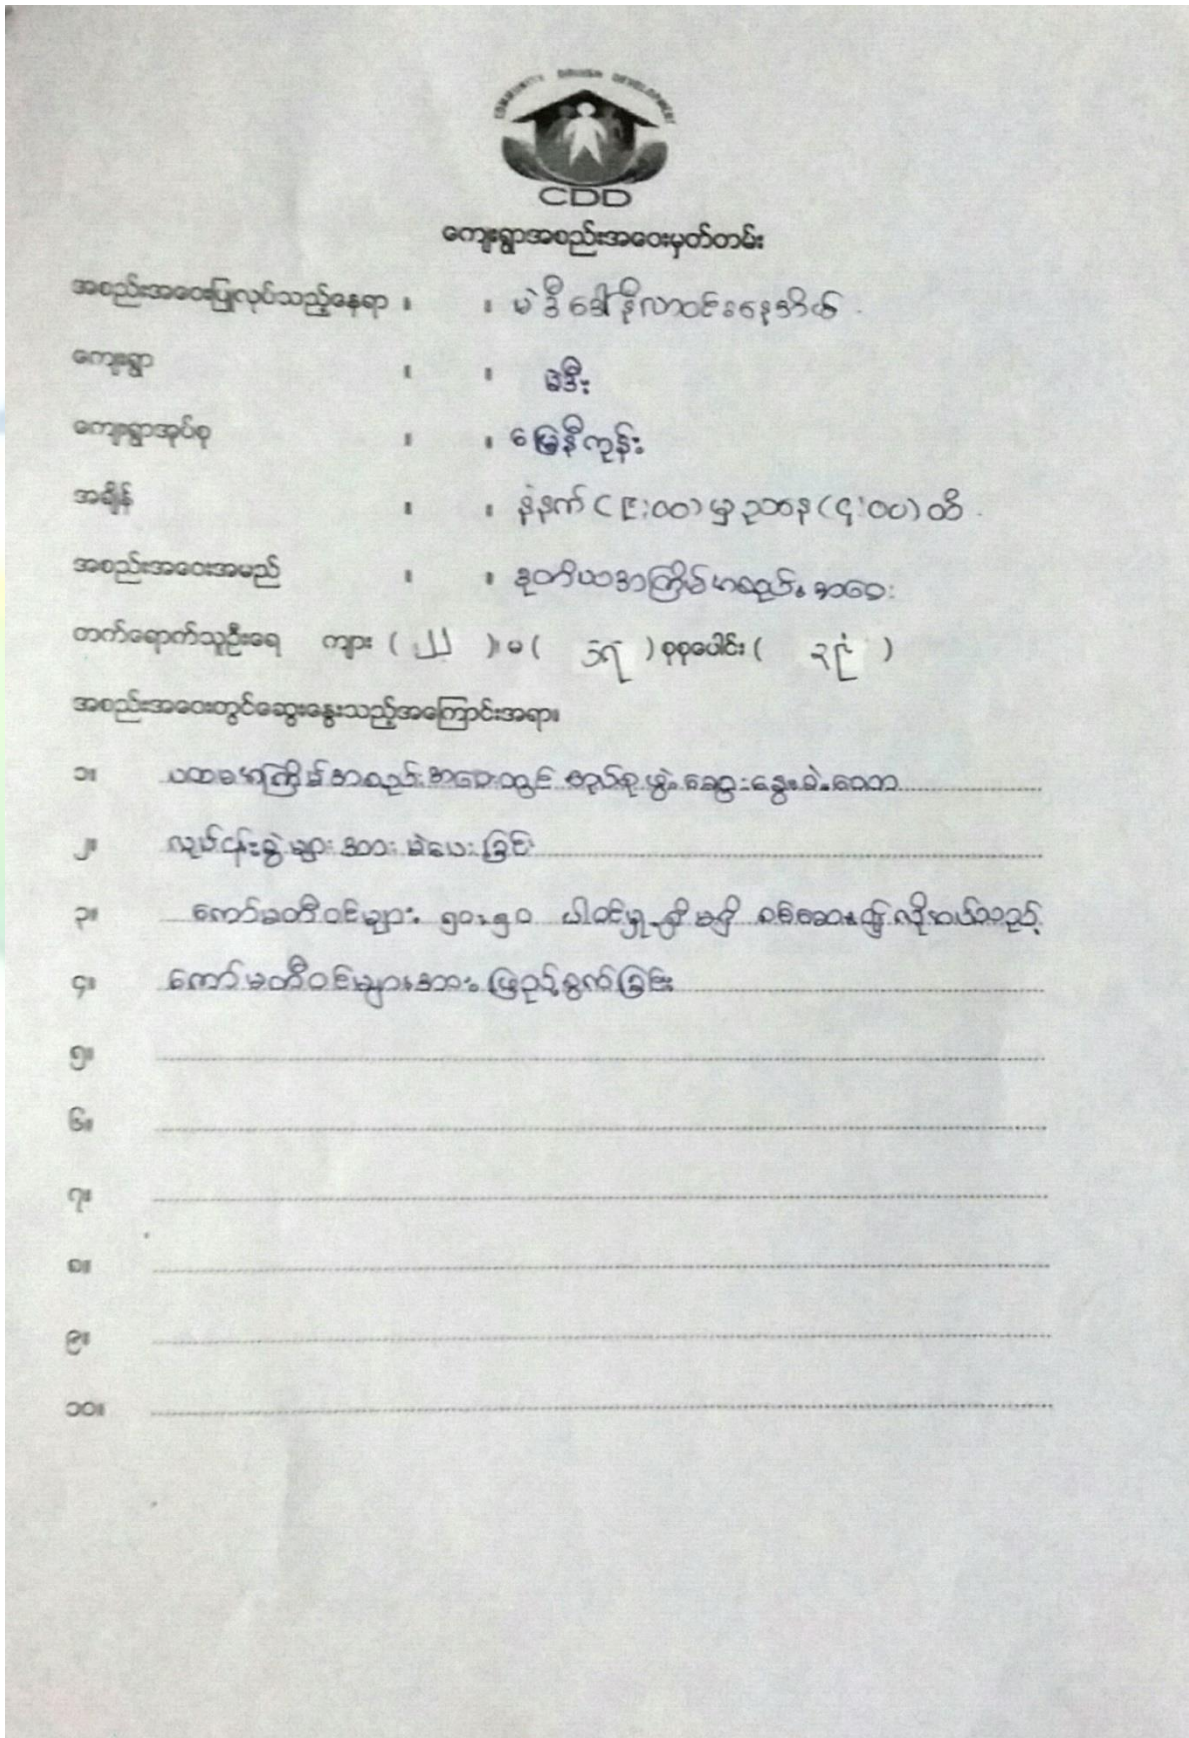 COMMUNITY DRIVEN DEVELOPMENT
CDD
ကျေးရွာအစည်းအဝေးမှတ်တမ်း
အစည်းအဝေးပြုလုပ်သည့်နေရာ ။ ။ မဲဒီ ဒေါ်နီလာဝင်းနေအိမ်
ကျေးရွာ ။ ။ မဲဒီး
ကျေးရွာအုပ်စု ။ ။ မြေနီကုန်း
အချိန် ။ ။ နံနက် (၉:၀၀) မှ ညနေ (၄:၀၀) ထိ
အစည်းအဝေးအမည် ။ ။ ဒုတိယအကြိမ်အစည်းအဝေး
တက်ရောက်သူဦးရေ ကျား ( ၂၂ )၊ မ ( ၁၇ ) စုစုပေါင်း ( ၃၉ )
အစည်းအဝေးတွင်ဆွေးနွေးသည့်အကြောင်းအရာ။
၁။ ပထမအကြိမ်အစည်းအဝေးတွင် အုပ်စုဖွဲ့ဆွေးနွေးခဲ့သော
၂။ လုပ်ငန်းခွဲများအား မဲပေးခြင်း
၃။ ကော်မတီဝင်များ ၅၀:၅၀ ပါဝင်မှုရှိမရှိ စစ်ဆေး၍ လိုအပ်သည့်
၄။ ကော်မတီဝင်များအား ဖြည့်စွက်ခြင်း
၅။
၆။
၇။
၈။
၉။
၁၀။